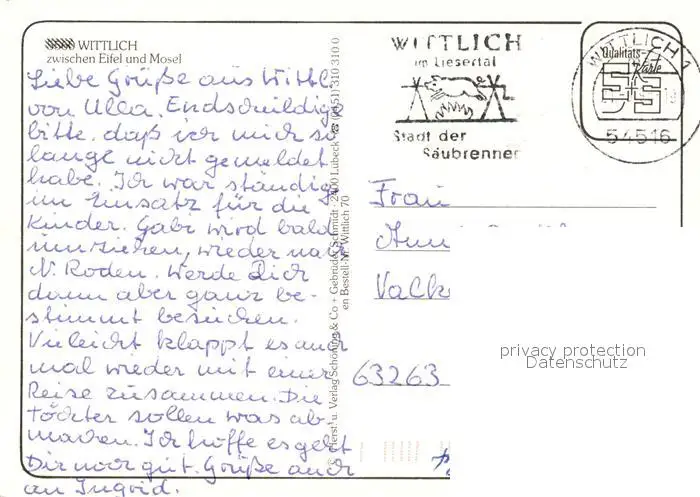 WITTLICH
zwischen Eifel und Mosel
Liebe Grüße aus Wittl
von Ulla. Endschuldige
bitte, daß ich mich so
lange nicht gemeldet
habe. Ich war ständig
im Einsatz für die
Kinder. Gabi wird bald
umziehen, wieder nach
N. Roden. Werde Dich
dann aber ganz be-
stimmt besuchen.
Vieleicht klappt es auch
mal wieder mit einer
Reise zusammen. Die
Töchter sollen was ab
machen. Ich hoffe es geht
Dir noch gut. Grüße auch
an Ingrid.
© Herst. u. Verlag Schöning & Co + Gebrüder Schmidt · 2400 Lübeck ☎ (0451) 310 310 0
en Bestell-Nr. Wittlich 70
WITTLICH
im Liesertal
Stadt der
Säubrenner
WITTLICH 1
54516
Qualitäts-
Karte
Frau
Ann
Valk
63263
privacy protection
Datenschutz